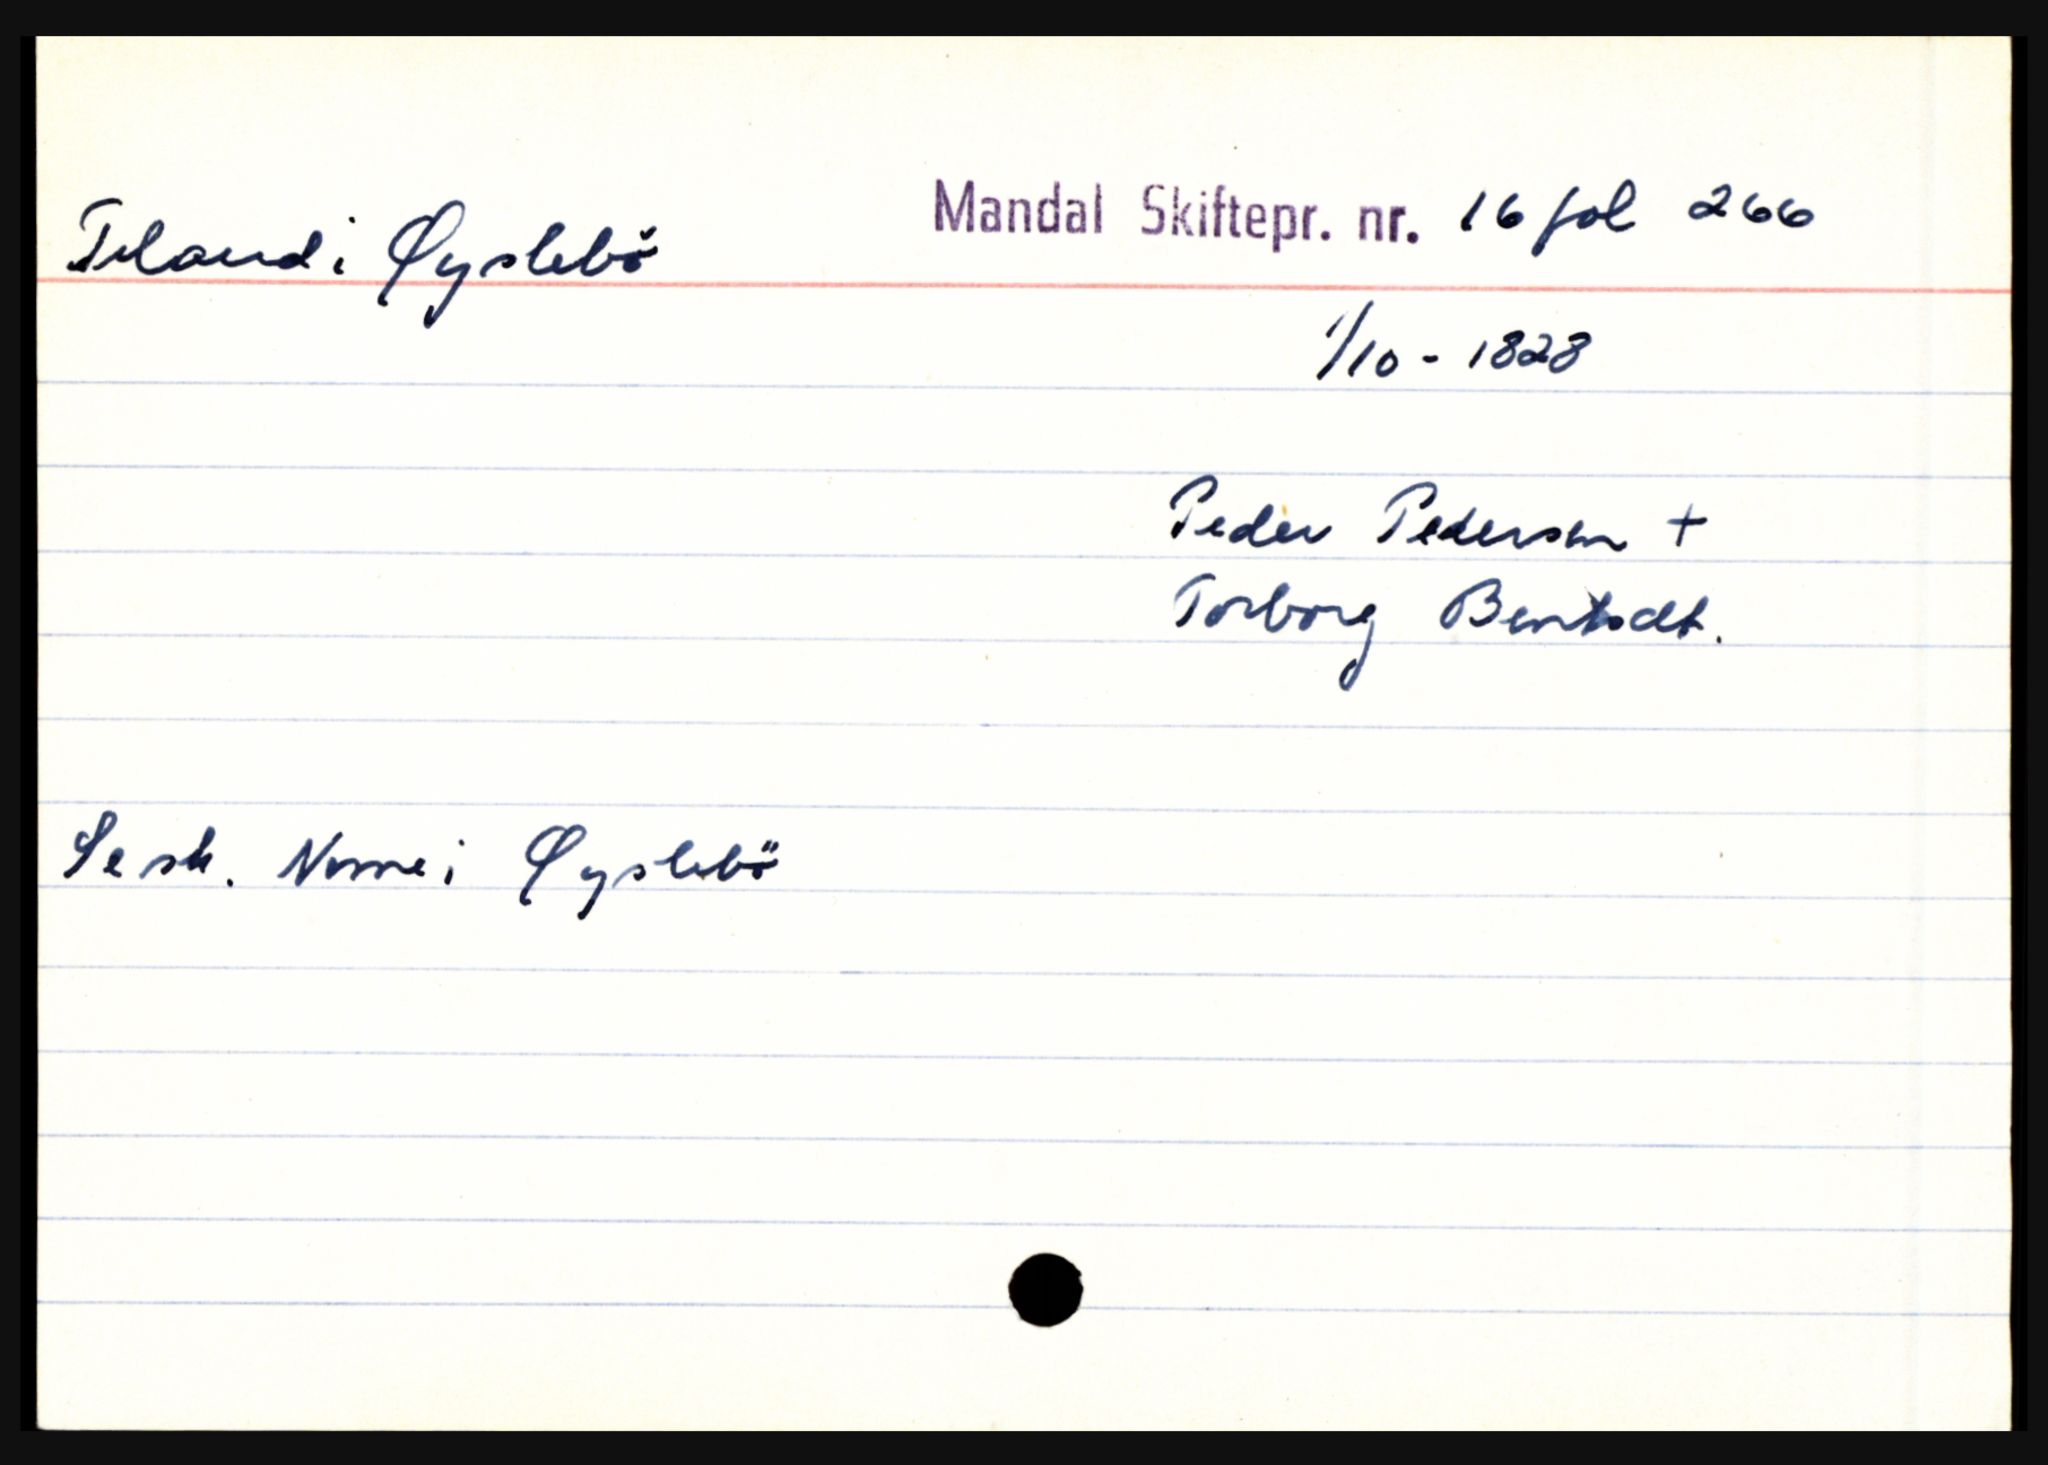 Trland i Øyslebö Mandal Skiftepr. nr. 16 fol 266
1/10 - 1828
Peder Pedersen +
Torborg Bentsdt.
Se sk. Nome i Øyslebö